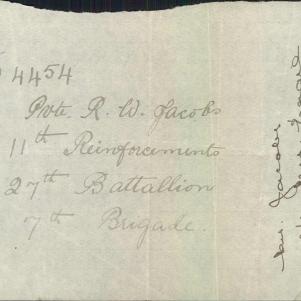 4454
Pvte. R. W. Jacobs
11th Reinforcements
27th Battallion
7th Brigade.
Mr. Jacobs